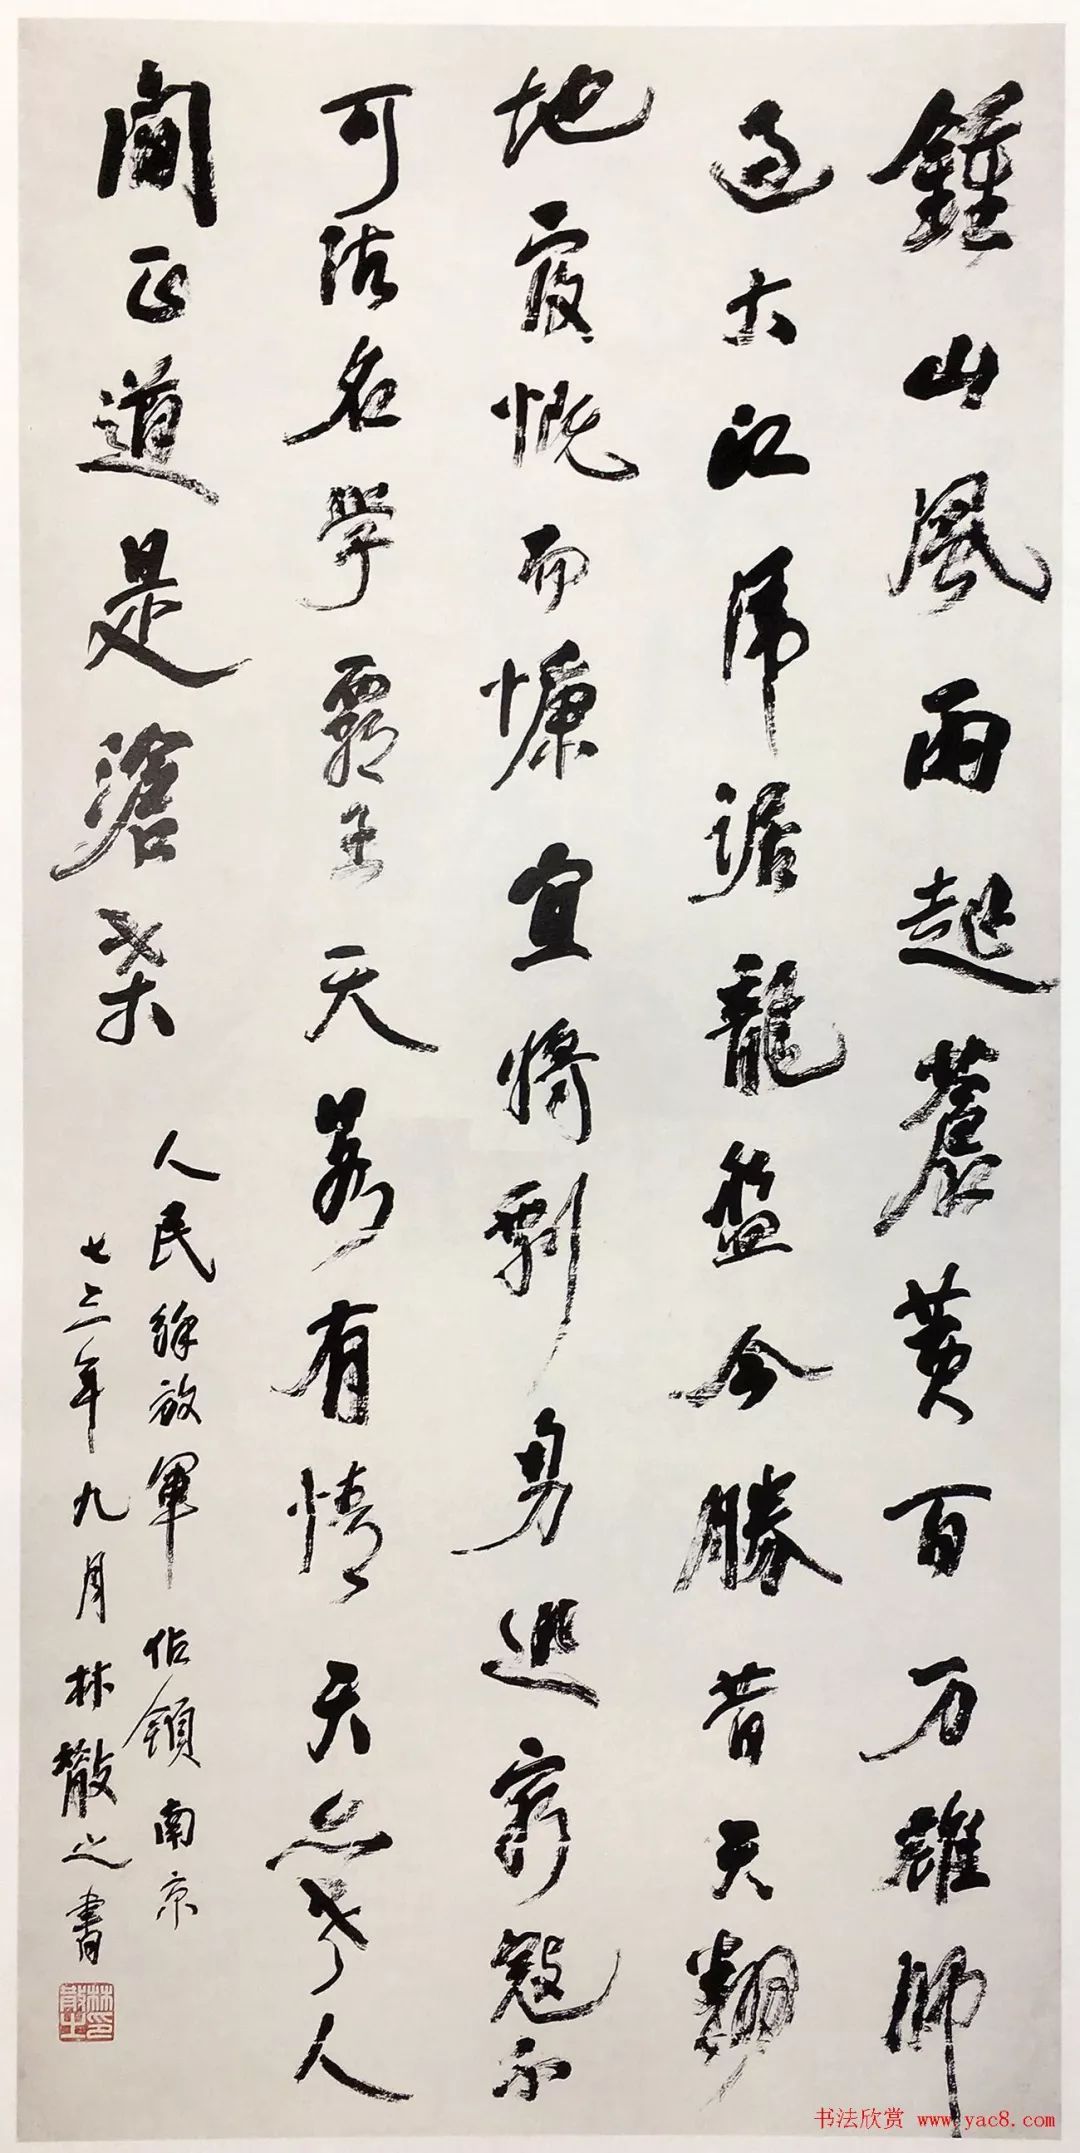 鍾山風雨起蒼黃百万雄師
過大江虎踞龍盤今勝昔天翻
地覆慨而慷宜將剩勇追窮寇不
可沽名學霸王天若有情天亦老人
間正道是滄桑
人民解放軍佔領南京
七三年九月林散之書
林散之印
书法欣赏 www.yac8.com